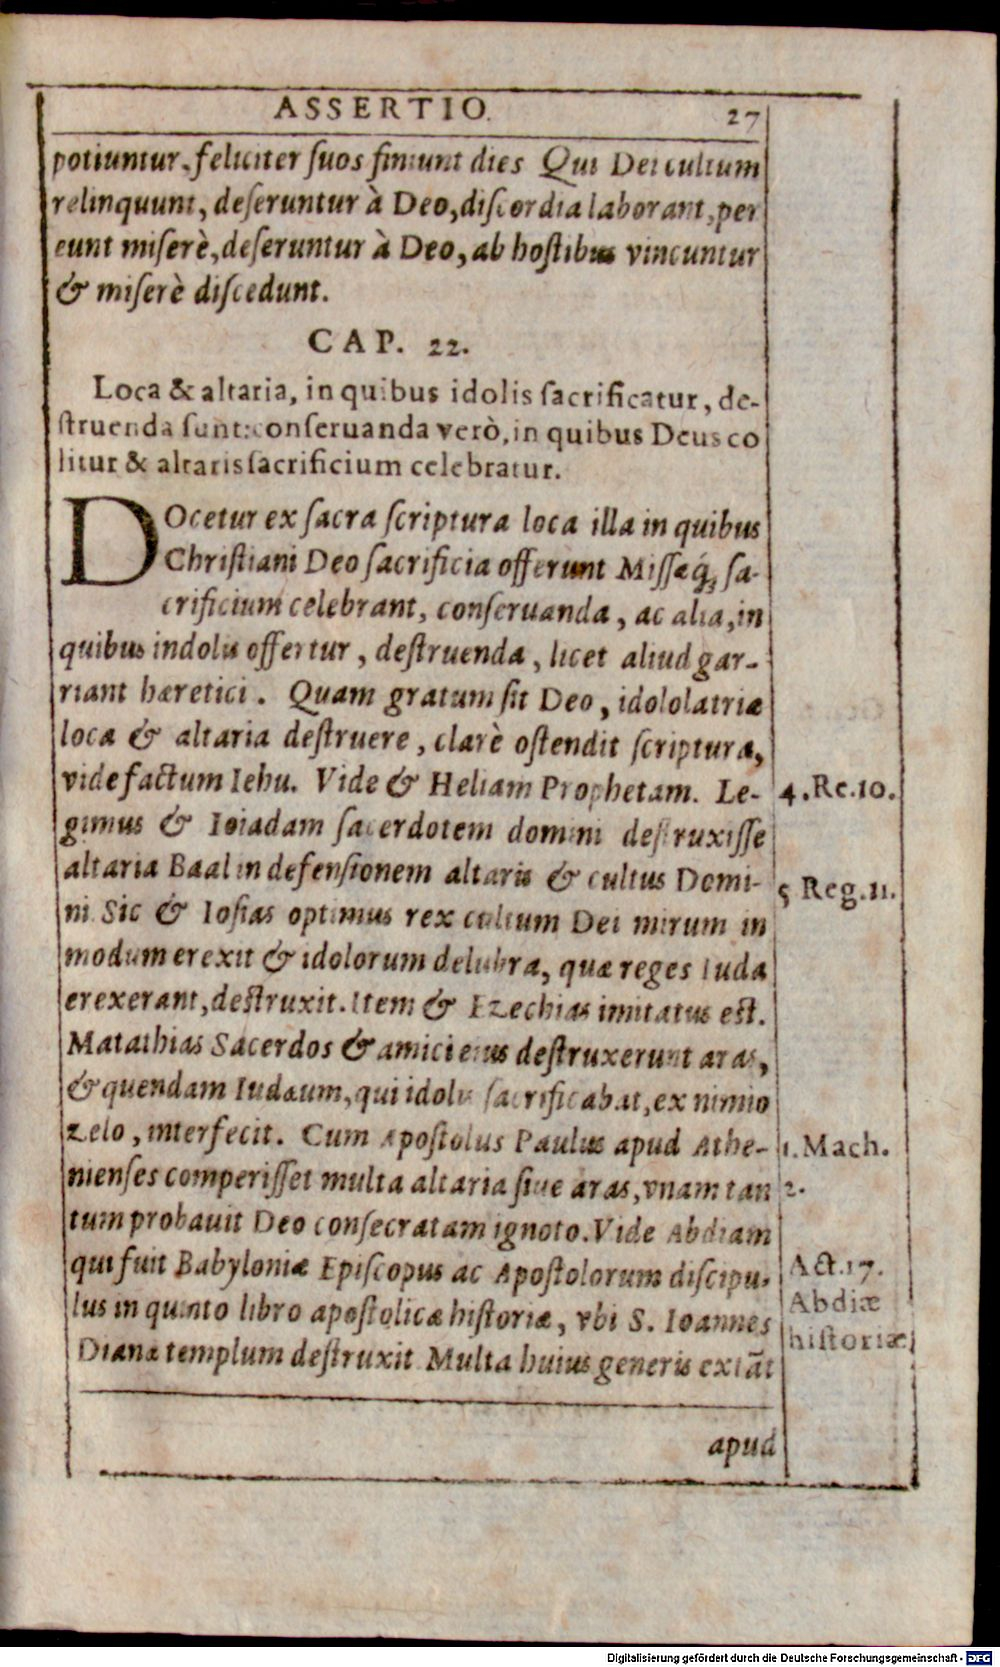 ASSERTIO. 27
potiuntur, feliciter ſuos finiunt dies Qui Dei cultum
relinquunt, deſeruntur à Deo, diſcordia laborant, per
eunt miſerè, deſeruntur à Deo, ab hoſtibus vincuntur
& miſerè diſcedunt.
CAP. 22.
Loca & altaria, in quibus idolis ſacrificatur, de-
ſtruenda ſunt: conſeruanda verò, in quibus Deus co
litur & altaris ſacrificium celebratur.
DOcetur ex ſacra ſcriptura loca illa in quibus
Chriſtiani Deo ſacrificia offerunt Miſſæq́; ſa-
crificium celebrant, conſeruanda, ac alia, in
quibus indolis offertur, deſtruenda, licet aliud gar-
riant hæretici. Quam gratum ſit Deo, idololatriæ
loca & altaria deſtruere, clarè oſtendit ſcriptura,
vide factum Iehu. Vide & Heliam Prophetam. Le-
4. Re. 10.
gimus & Ioiadam ſacerdotem domini deſtruxiſſe
altaria Baal in defenſionem altaris & cultus Domi-
5 Reg. 11.
ni Sic & Ioſias optimus rex cultum Dei mirum in
modum erexit & idolorum delubra, quæ reges Iuda
erexerant, deſtruxit. Item & Ezechias imitatus eſt.
Matathias Sacerdos & amici eius deſtruxerunt aras,
& quendam Iudæum, qui idolis ſacrificabat, ex nimio
zelo, interfecit. Cum Apoſtolus Paulus apud Athe-
1. Mach.
nienſes comperiſſet multa altaria ſiue aras, vnam tan
2.
tum probauit Deo conſecratam ignoto. Vide Abdiam
qui fuit Babyloniæ Epiſcopus ac Apoſtolorum diſcipu-
Act. 17.
lus in quinto libro apoſtolicæ hiſtoriæ, vbi S. Ioannes
Abdiæ
Dianæ templum deſtruxit Multa huius generis extãt
hiſtoriæ
apud
Digitalisierung gefördert durch die Deutsche Forschungsgemeinschaft - DFG